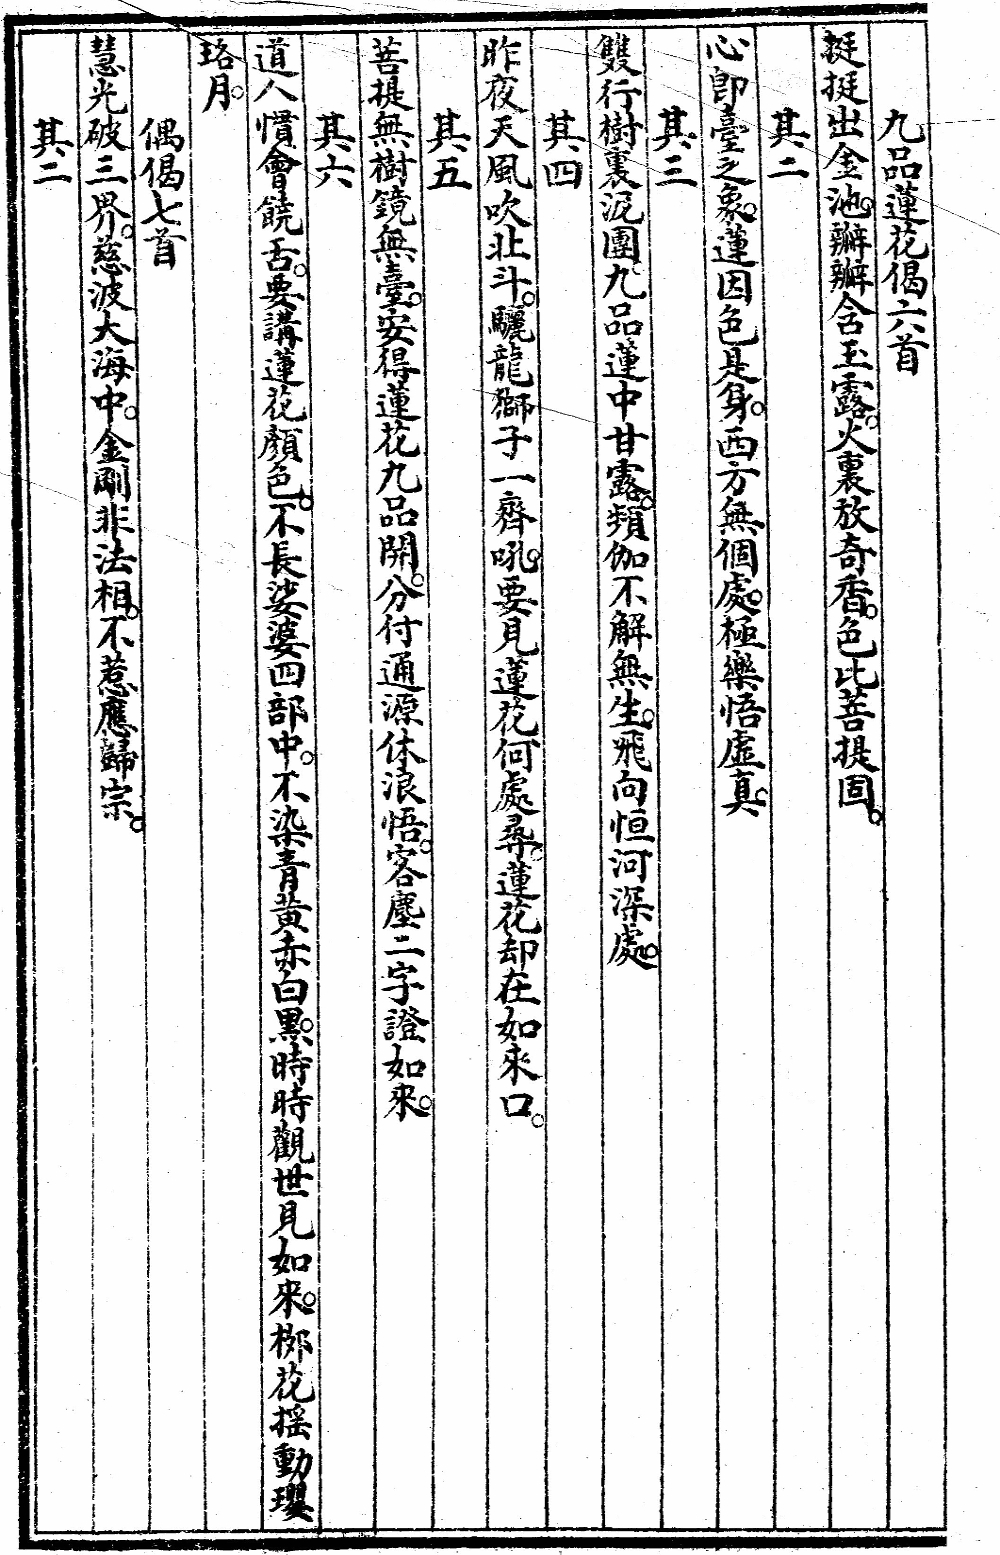 九品蓮花偈六首
挺挺出金池。瓣瓣含玉露。火裏放奇香。色比菩提固。
其二
心卽臺之象。蓮因色是身。西方無個處。極樂悟虛真。
其三
雙行樹裏泥團。九品蓮中甘露。頻伽不解無生。飛向恒河深處。
其四
昨夜天風吹北斗。驪龍獅子一齊吼。要見蓮花何處尋。蓮花却在如來口。
其五
菩提無樹鏡無臺。安得蓮花九品開。分付通源休浪悟。客塵二字證如來。
其六
道人慣會饒舌。要講蓮花顏色。不長娑婆四部中。不染青黃赤白黑。時時觀世見如來。栁花搖動瓔
珞月。
偶偈七首
慧光破三界。慈波大海中。金剛非法相。不惹應歸宗。
其二